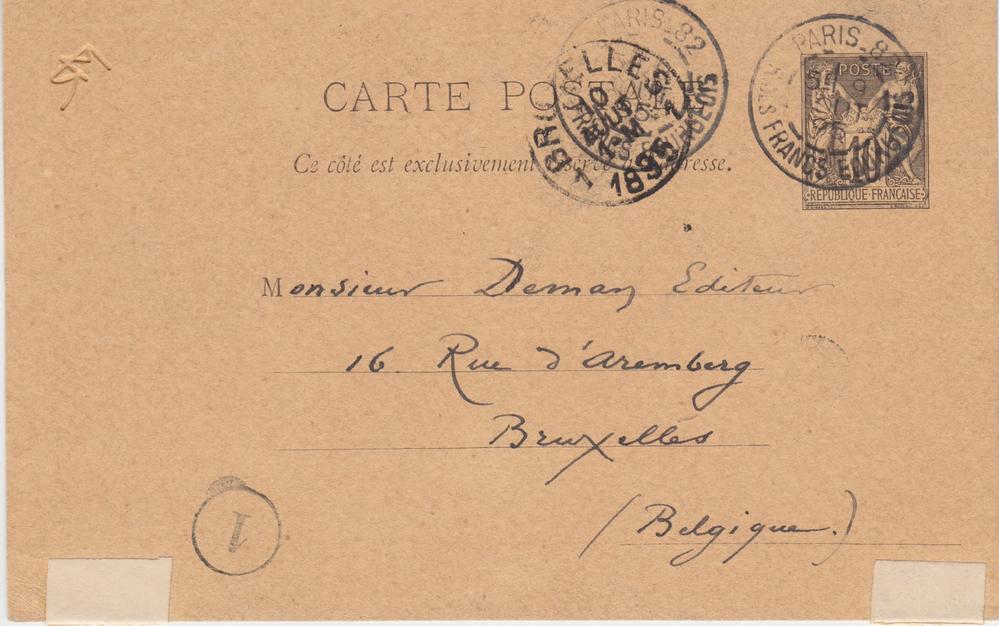 CARTE POSTALE
Ce côté est exclusivement réservé à l'adresse.
PARIS_82
FRANCS BOURGEOIS
BRUXELLES 1
1895
PARIS_8
FRANCS BOURGEOIS
POSTE
10
RÉPUBLIQUE FRANÇAISE
Monsieur Deman Editeur
16. Rue d'Aremberg
Bruxelles
(Belgique.)
1